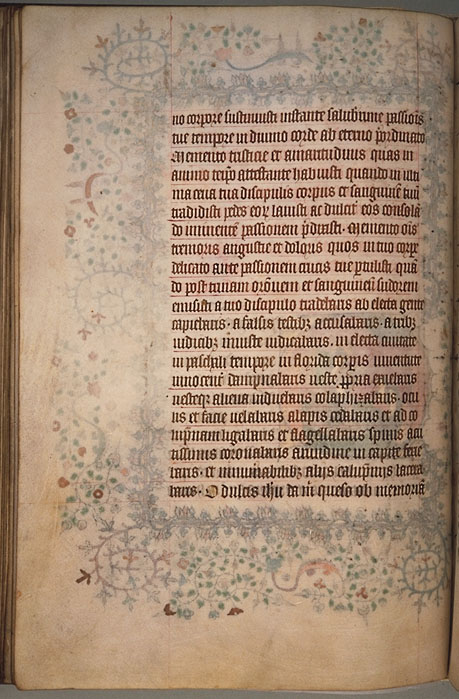 no corpore sustinuisti instante saluberrime passiois
tue tempore in diuino corde ab eterno pordinato
Memento tristicie et amaritudinis quas in
animo teipo attestante habuisti quando in ulti
ma cena tua discipulis corpus et sanguinē tuū
tradidisti pedes eoꝝ lauisti ac dulcit' eos consolā
do iminētē passionem p̄dixisti. Memento oīs
tremoris angustie et doloris quos in tuo corpe
delicato ante passionem crucis tue ptulisti quā
do post trinam orōnem et sanguineū sudorem
emisisti a tuo discipulo tradebaris ab electa gente
capiebaris. a falsis testibꝫ accusabaris. a tribꝫ
iudicibꝫ iniuste iudicabaris. in electa ciuitate
in paschali tempore in florida corpis iuuentute
innocent' dampnabaris ueste ppria exuebaris
uestibꝫ aliena induebaris colaphizabaris. ocu
lis et facie uelabaris alapis cedebaris et ad co
lūpnam ligabaris et flagellabaris spinis acu
tissimis coronabaris arundine in capite ferie
baris. et innumabilibꝫ alijs calūpnijs lacera
baris. O dulcis ihū da m' queso ob memoriā